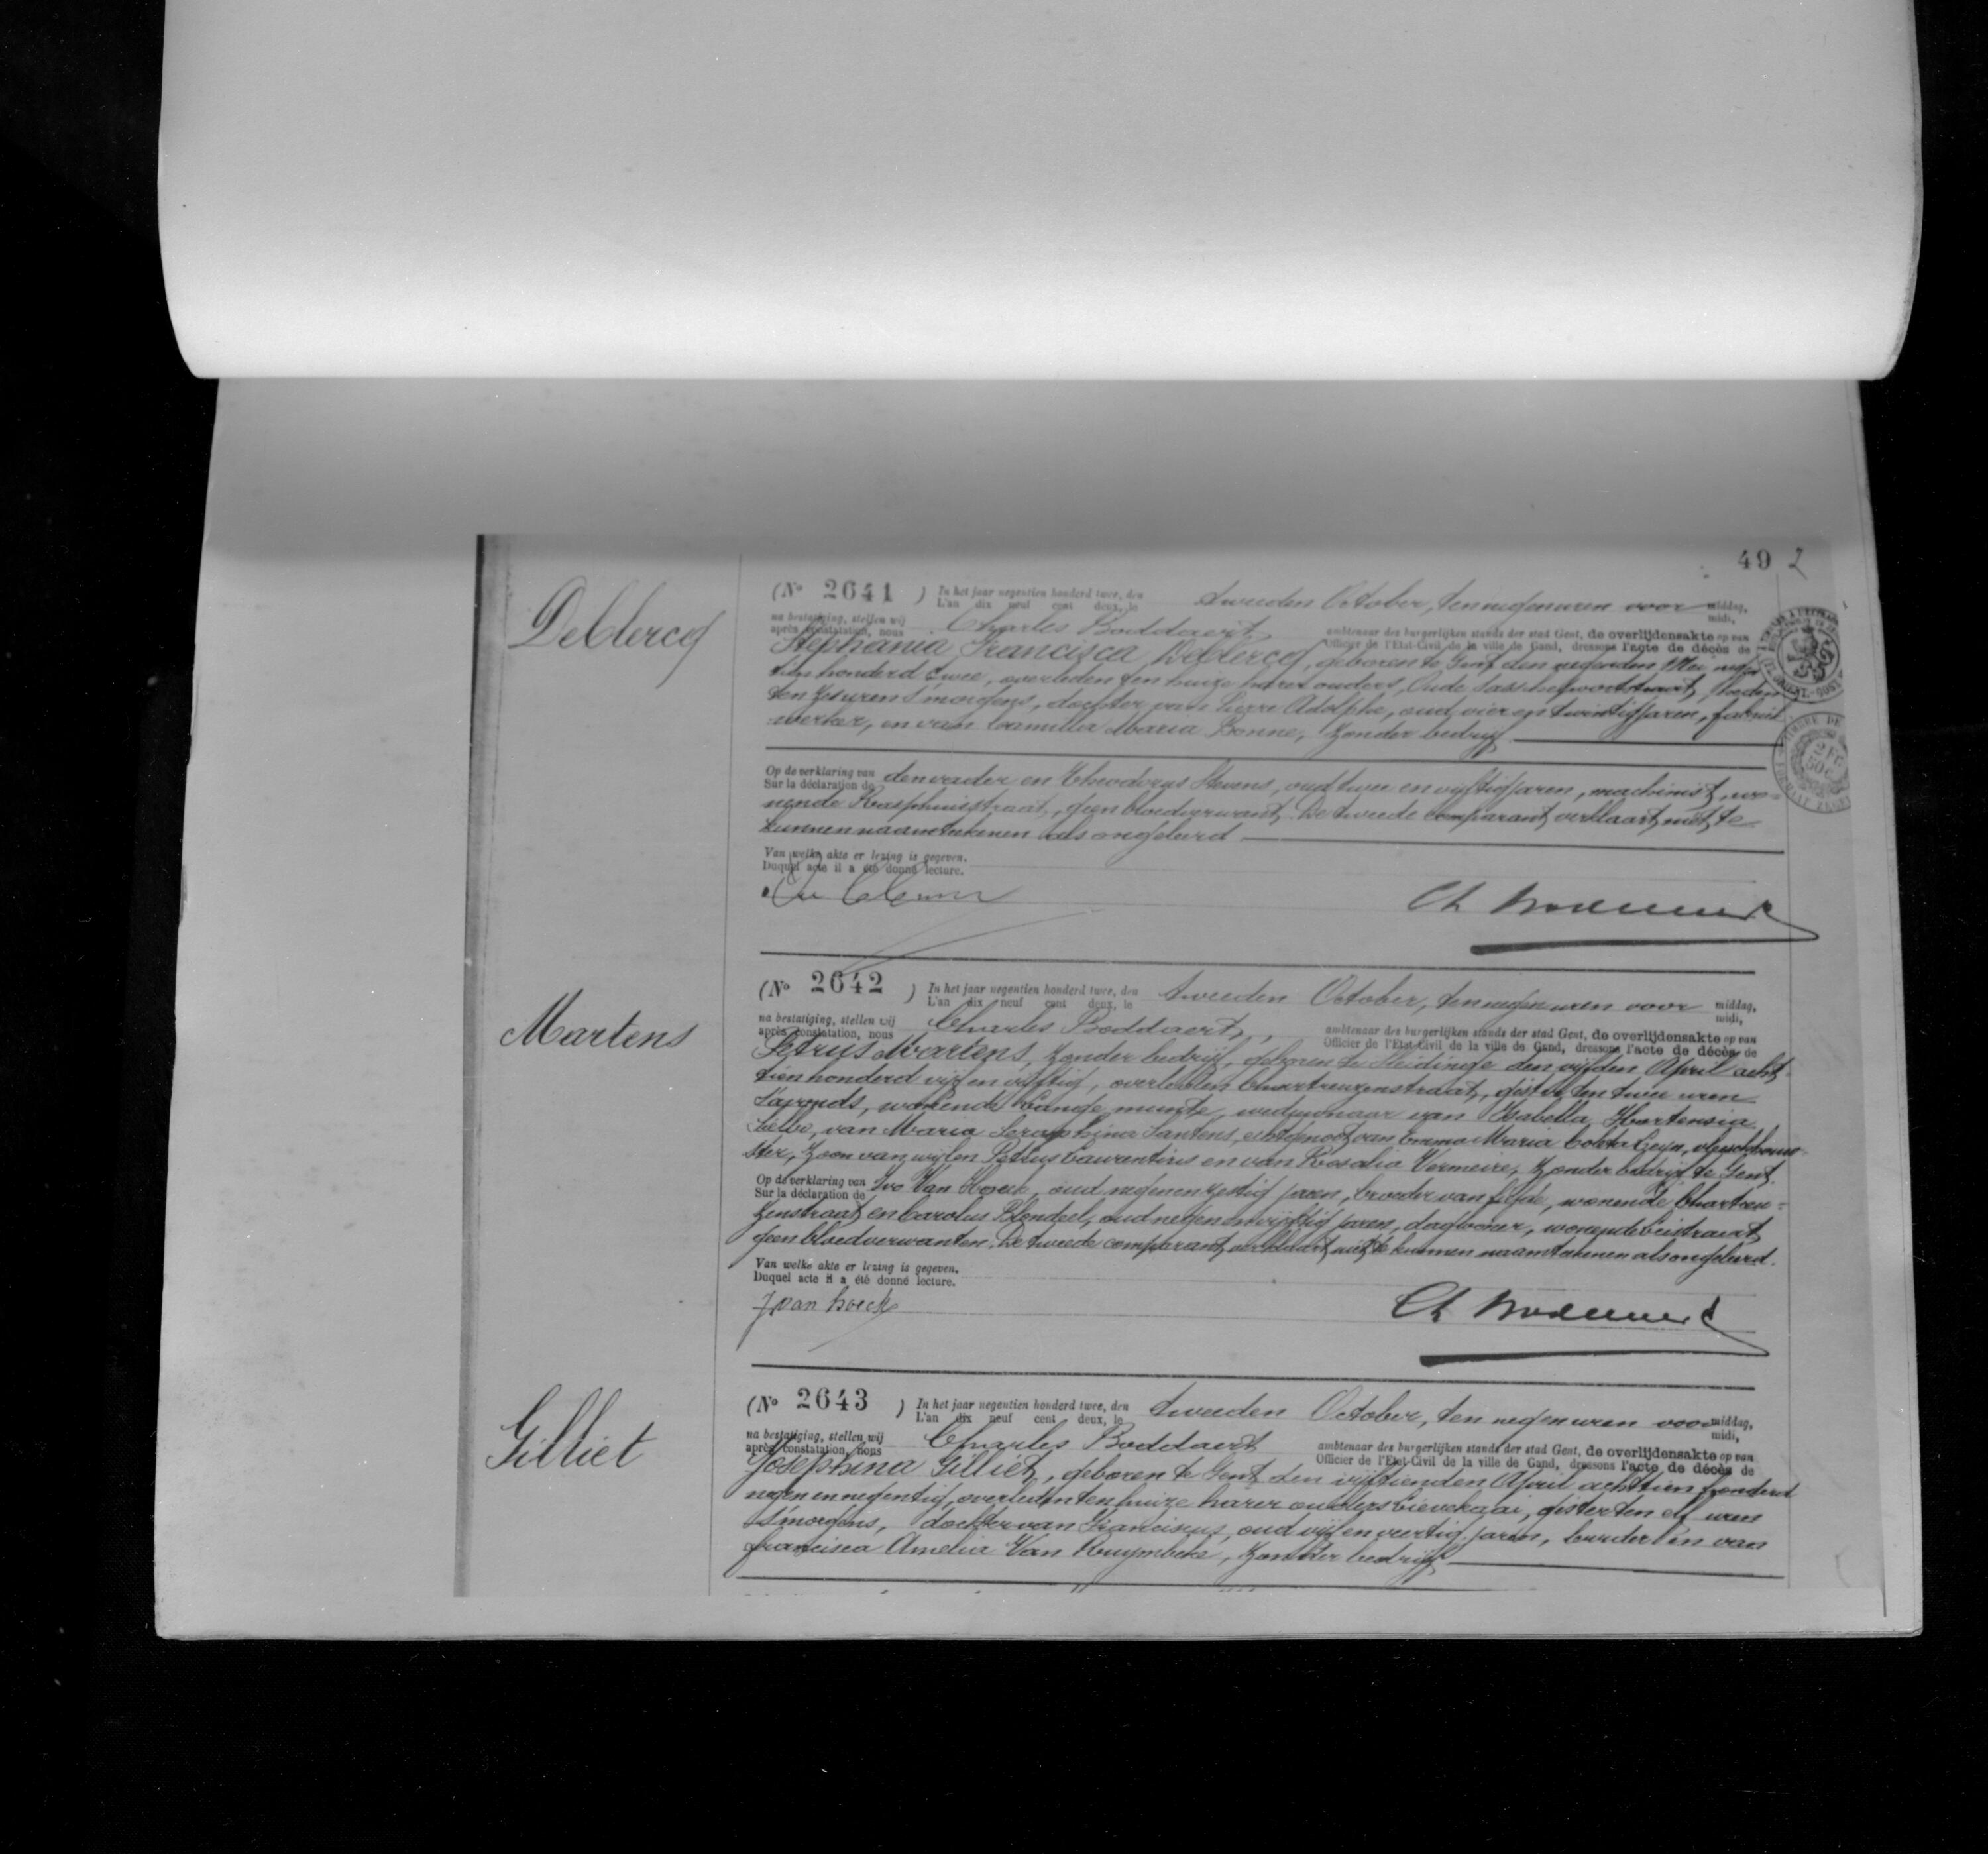 49 2
DeClercq
(No 2641) In het jaar negentien honderd twee, den tweeden October, ten negen uren voor middag,
L'an dix neuf cent deux, le midi,
na bestatiging, stellen wij Charles Boddaert, ambtenaar des burgerlijken stands der stad Gent, de overlijdensakte op van
après constatation, nous Officier de l'Etat-Civil de la ville de Gand, dressons l'acte de décès de
Stephania Francisca DeClercq, geboren te Gent den negenden Mei negen
tien honderd twee, overleden ten huize harer ouders, Oude
ten zes uren s'morgens, dochter van Pierre Adolphe, oud vier en twintig jaren, fabriek
werker, en van Camilla Maria Bonne, zonder bedrijf
Op de verklaring van den vader en Theodorus Stevens, oud twee en vijftig jaren, machinist, wo-
Sur la déclaration de
nende Rasphuisstraat, geen bloedverwant. De tweede comparant verklaart niet te
kunnen naamteekenen als ongeleerd
Van welke akte er lezing is gegeven.
Duquel acte il a été donné lecture.
Martens
(No 2642) In het jaar negentien honderd twee, den tweeden October, ten negen uren voor middag,
L'an dix neuf cent deux, le midi,
na bestatiging, stellen wij Charles Boddaert, ambtenaar des burgerlijken stands der stad Gent, de overlijdensakte op van
après constatation, nous Officier de l'Etat-Civil de la ville de Gand, dressons l'acte de décès de
Petrus Martens, zonder bedrijf, geboren te Sleidinge den vijfden April acht
tien honderd vijf en vijftig, overleden Chartreuzenstraat, gister ten twee uren
s'avonds, wonende Lange munte, weduwnaar van Isabella Hortensia
van Maria Seraphina Santens, echtgenoot van Emma Maria
zoon van wijlen Petrus Laurentius en van Rosalia Vermeire, zonder bedrijf, te Gent.
Op de verklaring van Ivo Van Hoeck, oud negen en zestig jaren, broeder van liefde, wonende Chartreu-
Sur la déclaration de
zenstraat en Carolus Blondeel, oud negen en vijftig jaren, daglooner, wonende Leistraat,
geen bloedverwanten. De tweede comparant verklaart niet te kunnen naamteekenen als ongeleerd.
Van welke akte er lezing is gegeven.
Duquel acte il a été donné lecture.
J van hoeck
Gilliet
(No 2643) In het jaar negentien honderd twee, den tweeden October, ten negen uren voor middag,
L'an dix neuf cent deux, le midi,
na bestatiging, stellen wij Charles Boddaert ambtenaar des burgerlijken stands der stad Gent, de overlijdensakte op van
après constatation, nous Officier de l'Etat-Civil de la ville de Gand, dressons l'acte de décès de
Josephina Gilliet, geboren te Gent den vijftienden April achttien honderd
negen en negentig, overleden ten huize harer ouders Lievekaai, gister ten elf uren
s'morgens, dochter van Franciscus, oud vijf en veertig jaren, en van
Francisca Amelia Van Kruymbeke, zonder bedrijf